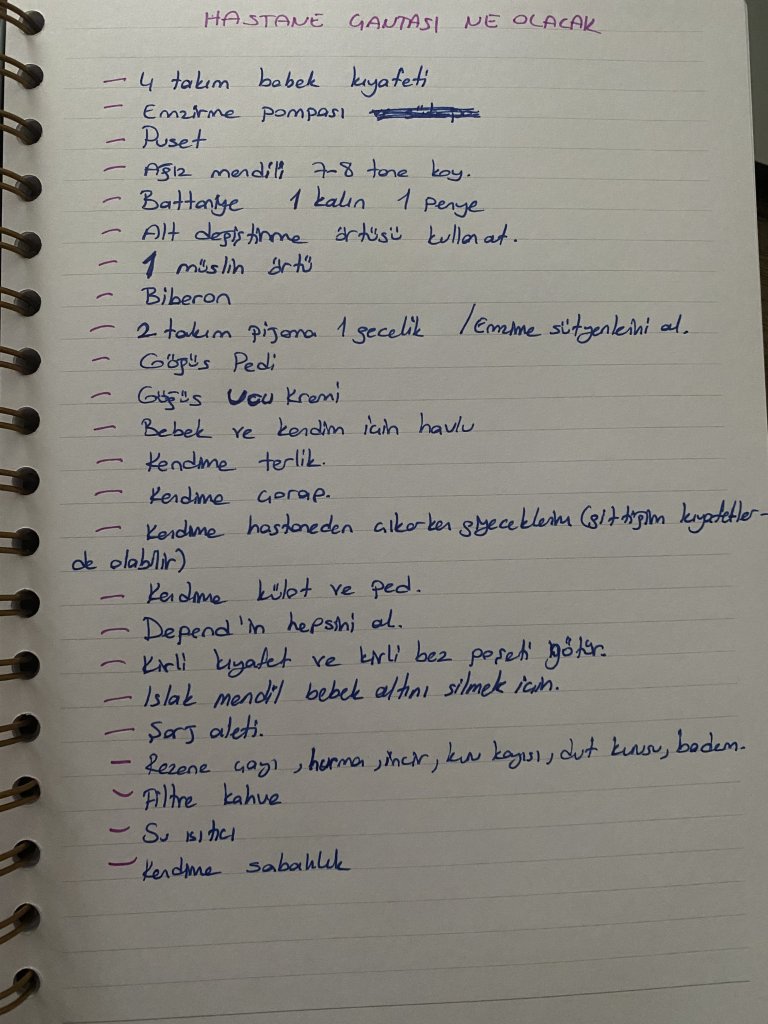 HASTANE ÇANTASI NE OLACAK
- 4 takım bebek kıyafeti
- Emzirme pompası
- Puset
- Ağız mendili 7-8 tane koy.
- Battaniye 1 kalın 1 penye
- Alt değiştirme örtüsü kullan at.
- 1 müslin örtü
- Biberon
- 2 takım pijama 1 gecelik / Emzirme sütyenlerini al.
- Göğüs Pedi
- Göğüs Ucu Kremi
- Bebek ve kendim için havlu
- Kendime terlik.
- Kendime çorap.
- Kendime hastaneden çıkarken giyeceklerim (gittiğim kıyafetler-
de olabilir)
- Kendime külot ve ped.
- Depend'in hepsini al.
- Kirli kıyafet ve kirli bez poşeti götür.
- Islak mendil bebek altını silmek için.
- Şarj aleti.
- Rezene çayı, hurma, incir, kuru kayısı, dut kurusu, badem.
- Filtre kahve
- Su ısıtıcı
- Kendime sabahlık